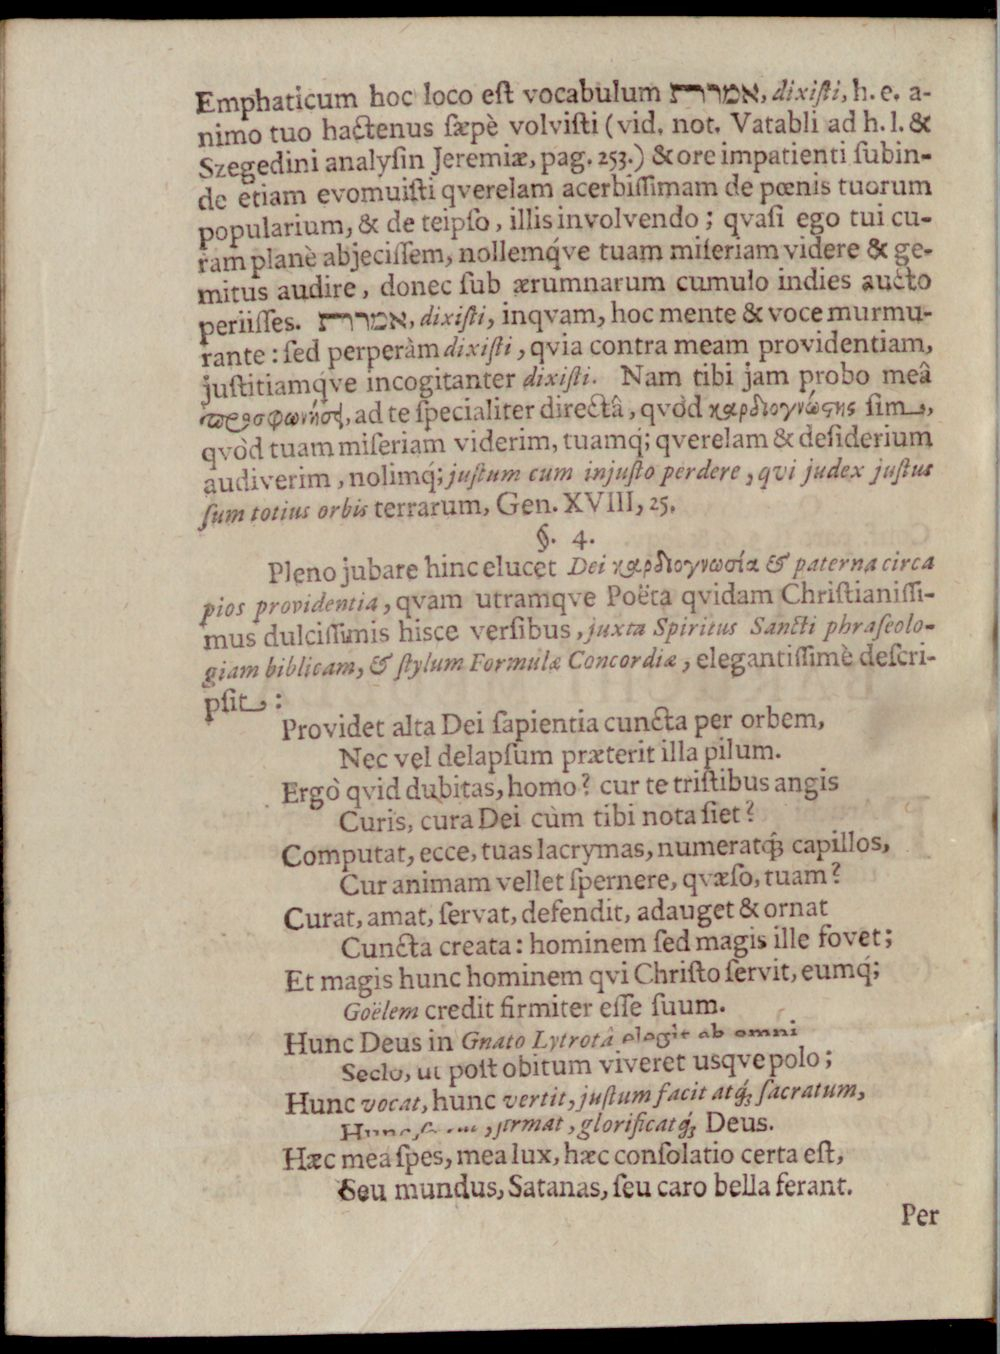 Emphaticum hoc loco eſt vocabulum אמרת, dixiſti, h. e. a-
nimo tuo hactenus ſæpè volviſti (vid. not. Vatabli ad h. l. &
Szegedini analyſin Jeremiæ, pag. 253.) & ore impatienti ſubin-
de etiam evomuiſti qverelam acerbiſſimam de pœnis tuorum
popularium, & de teipſo, illis involvendo; qvaſi ego tui cu-
ram planè abjeciſſem, nollemq́ve tuam miſeriam videre & ge-
mitus audire, donec ſub ærumnarum cumulo indies aucto
periiſſes. אמרת, dixiſti, inqvam, hoc mente & voce murmu-
rante: ſed perperàm dixiſti, qvia contra meam providentiam,
juſtitiamq́ve incogitanter dixiſti. Nam tibi jam probo meâ
προσφωνήσει, ad te ſpecialiter directâ, qvòd καρδιογνώϛης ſim,
qvòd tuam miſeriam viderim, tuamq́; qverelam & deſiderium
audiverim, nolimq́; juſtum cum injuſto perdere, qvi judex juſtus
ſum totius orbis terrarum, Gen. XVIII, 25.
§. 4.
Pleno jubare hinc elucet Dei καρδιογνωσία & paterna circa
pios providentia, qvam utramqve Poëta qvidam Chriſtianiſſi-
mus dulciſſimis hisce verſibus, juxta Spiritus Sancti phraſeolo-
giam biblicam, & ſtylum Formulæ Concordiæ, elegantiſſimè deſcri-
pſit:
Providet alta Dei ſapientia cuncta per orbem,
Nec vel delapſum præterit illa pilum.
Ergò qvid dubitas, homo? cur te triſtibus angis
Curis, cura Dei cùm tibi nota ſiet?
Computat, ecce, tuas lacrymas, numeratq́ꝫ capillos,
Cur animam vellet ſpernere, qvæſo, tuam?
Curat, amat, ſervat, defendit, adauget & ornat
Cuncta creata: hominem ſed magis ille fovet;
Et magis hunc hominem qvi Chriſto ſervit, eumq́;
Goëlem credit firmiter eſſe ſuum.
Hunc Deus in Gnato Lytrotâ elegit ab omni
Seclo, ut poſt obitum viveret usqve polo;
Hunc vocat, hunc vertit, juſtum facit atq́ꝫ ſacratum,
Hunc firmat, glorificatq́ꝫ Deus.
Hæc mea ſpes, mea lux, hæc conſolatio certa eſt,
Seu mundus, Satanas, ſeu caro bella ferant.
Per